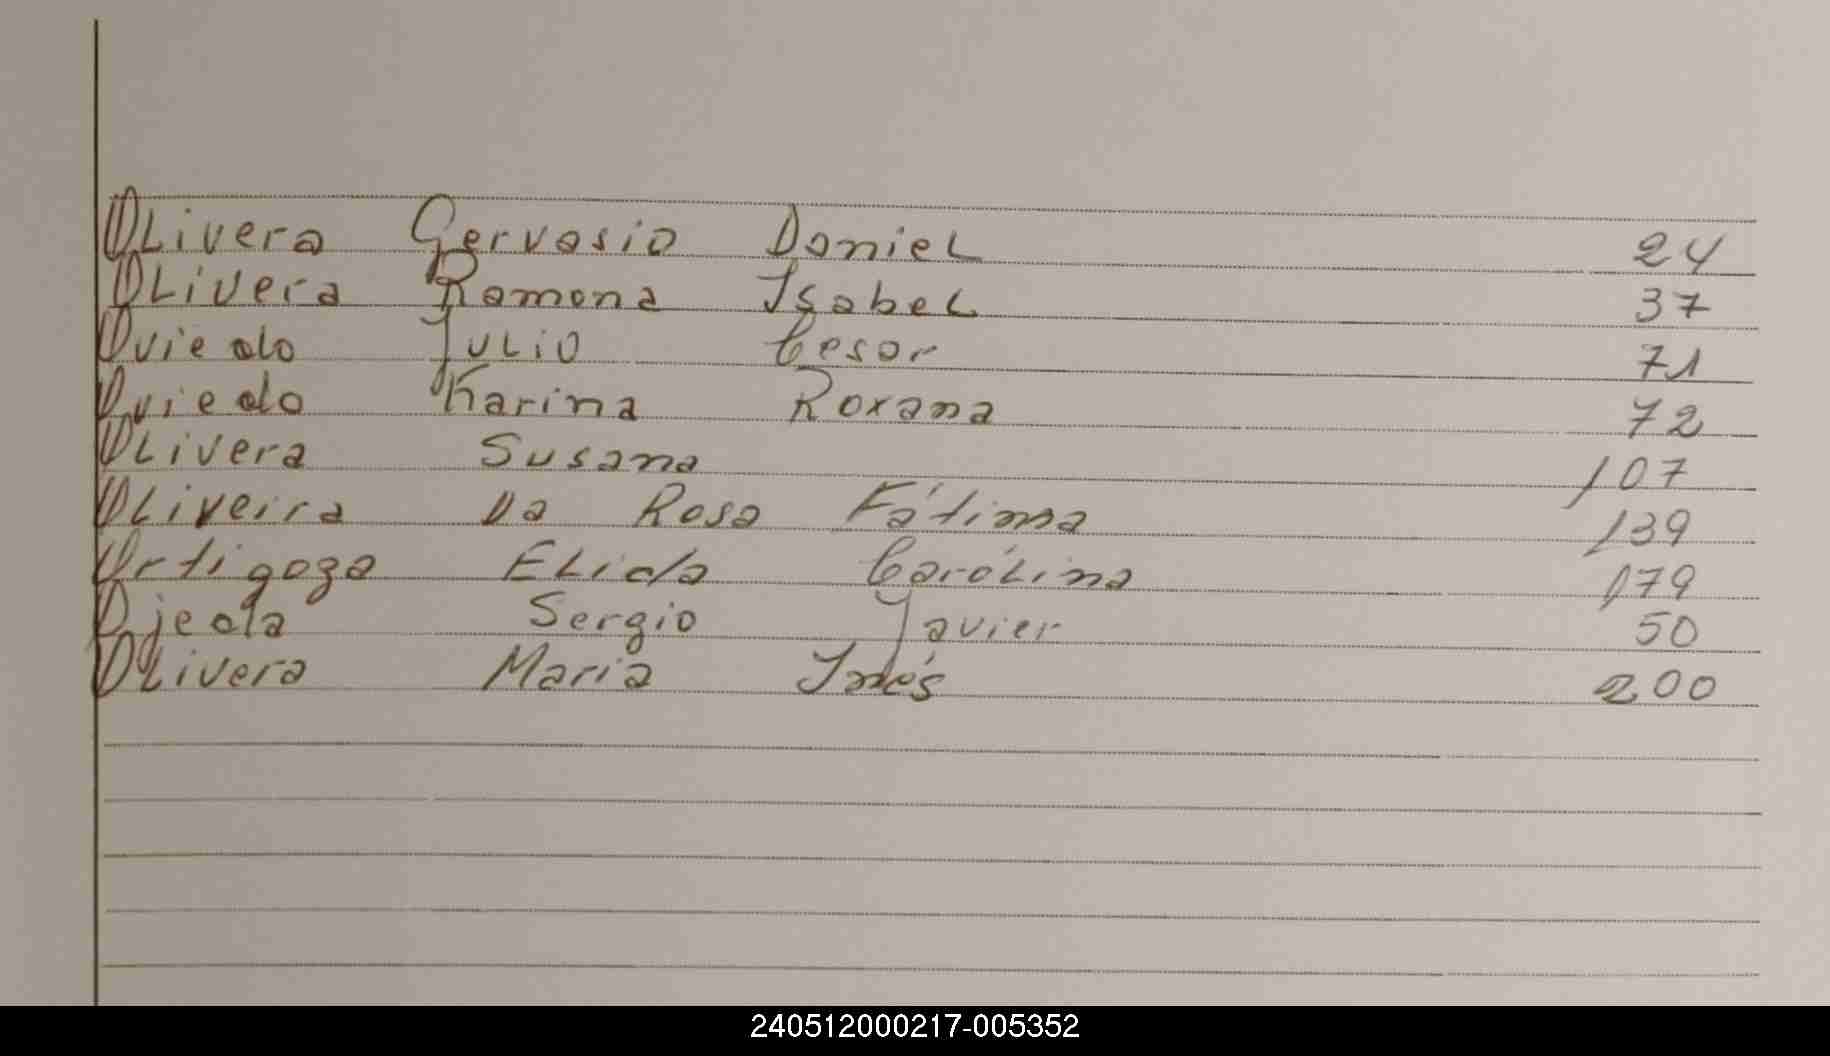 Olivera Gervasio Daniel 24
Olivera Ramona Isabel 37
Oviedo Julio Cesar 71
Oviedo Karina Roxana 72
Olivera Susana 107
Oliveira Da Rosa Fátima 139
Ortigoza Elida Carólina 179
Ojeda Sergio Javier 50
Olivera Maria Inés 200
240512000217-005352